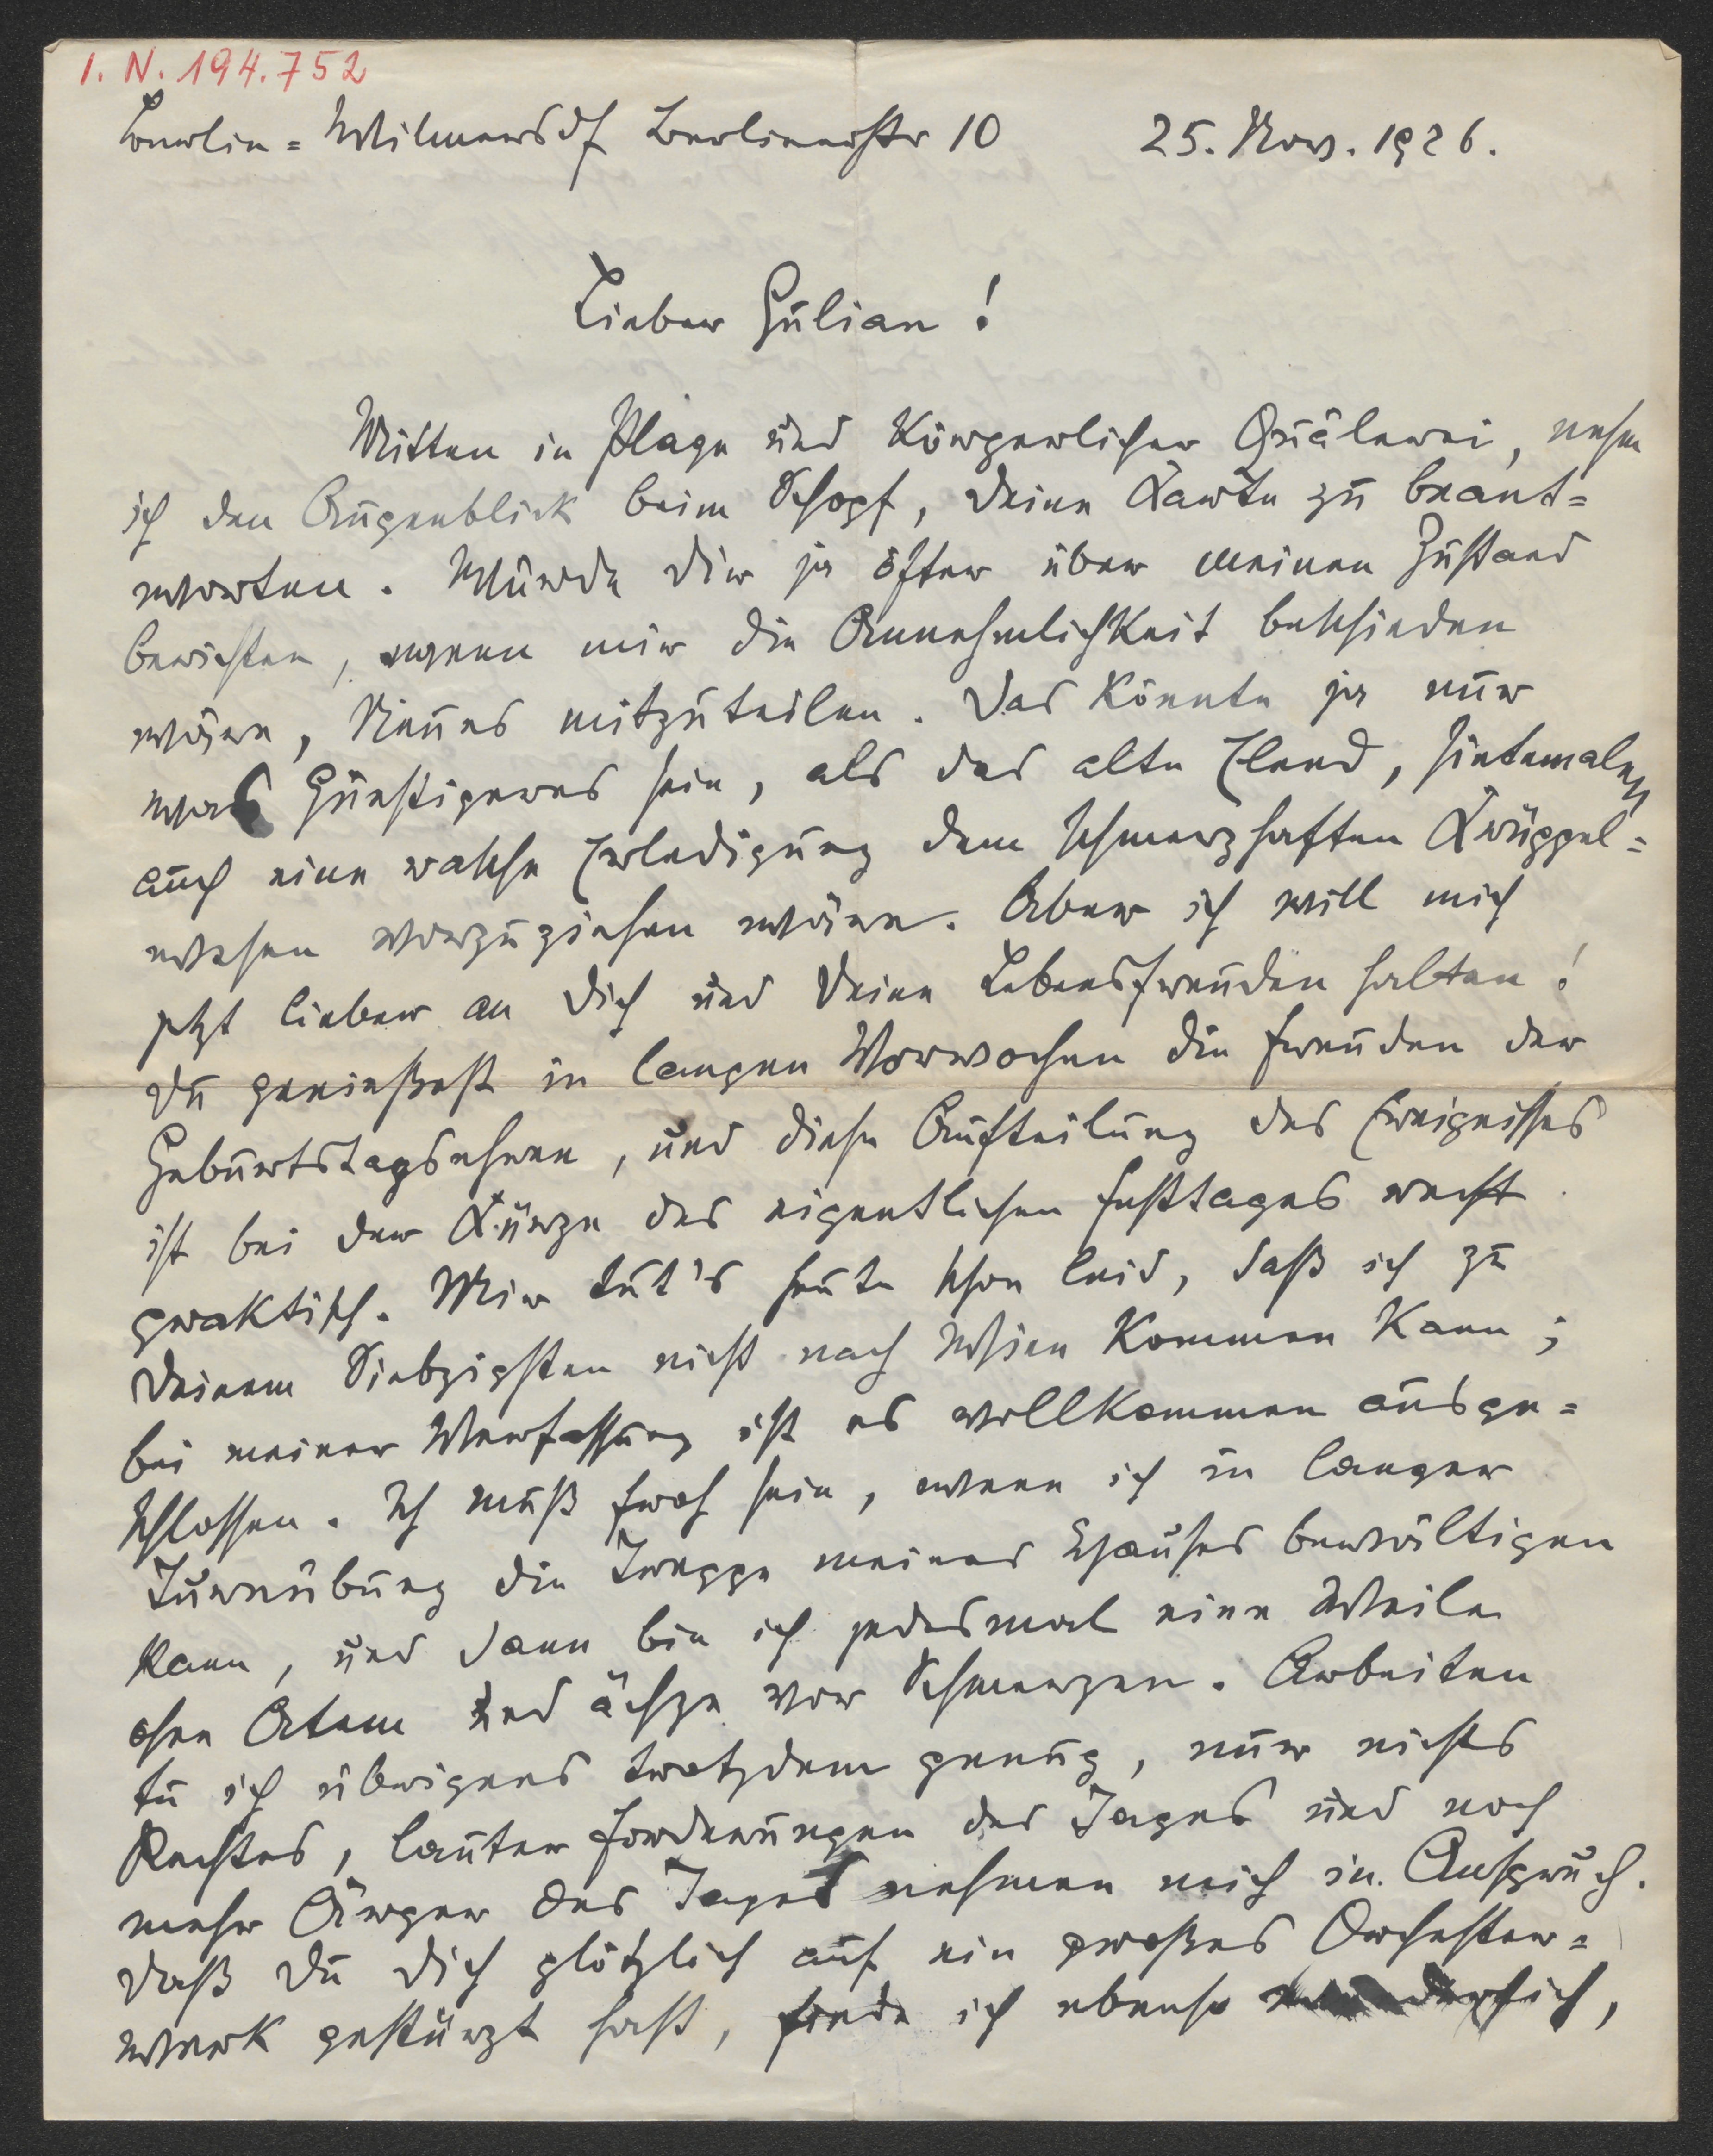 I. N. 194.752
Berlin = Wilmersdf Berlinerstr 10 25. Nov. 1926.
Lieber Julian!
Mitten in Plage und Körperlicher Quälerei, nehm
ich den Augenblick beim Schopf, Deine Karte zu beant=
worten. Würde Dir ja öfter über meinen Zustand
berichten, wenn mir die Annehmlichkeit beschieden
wäre, Neues mitzuteilen. Das könnte ja nur
was Günstigeres sein, als das alte Elend, sintemalen
auch eine rasche Erledigung dem schmerzhaften Krüppel=
wesen vorzuziehen wäre. Aber ich will mich
jetzt lieber an Dich und Deine Lebensfreuden halten!
Du genießest in langen Vorwochen die Freuden der
Geburtstagsehren, und diese Aufteilung des Ereignisses
ist bei der Kürze des eigentlichen Festtages recht
praktisch. Mir tut's heute schon leid, daß ich zu
Deinem Siebzigsten nicht nach Wien kommen kann;
bei meiner Verfassung ist es vollkommen ausge=
schlossen. Ich muß froh sein, wenn ich in langer
Turnübung die Treppe meines Hauses bewältigen
kann, und dann bin ich jedesmal eine Weile
ohne Atem und ächze vor Schmerzen. Arbeiten
tu ich übrigens trotzdem genug, nur nichts
Rechtes, lauter Forderungen des Tages und noch
mehr Ärger des Tages nehmen mich in Anspruch.
Daß Du Dich plötzlich auf ein großes Orchester=
werk gestürzt hast, finde ich ebenso